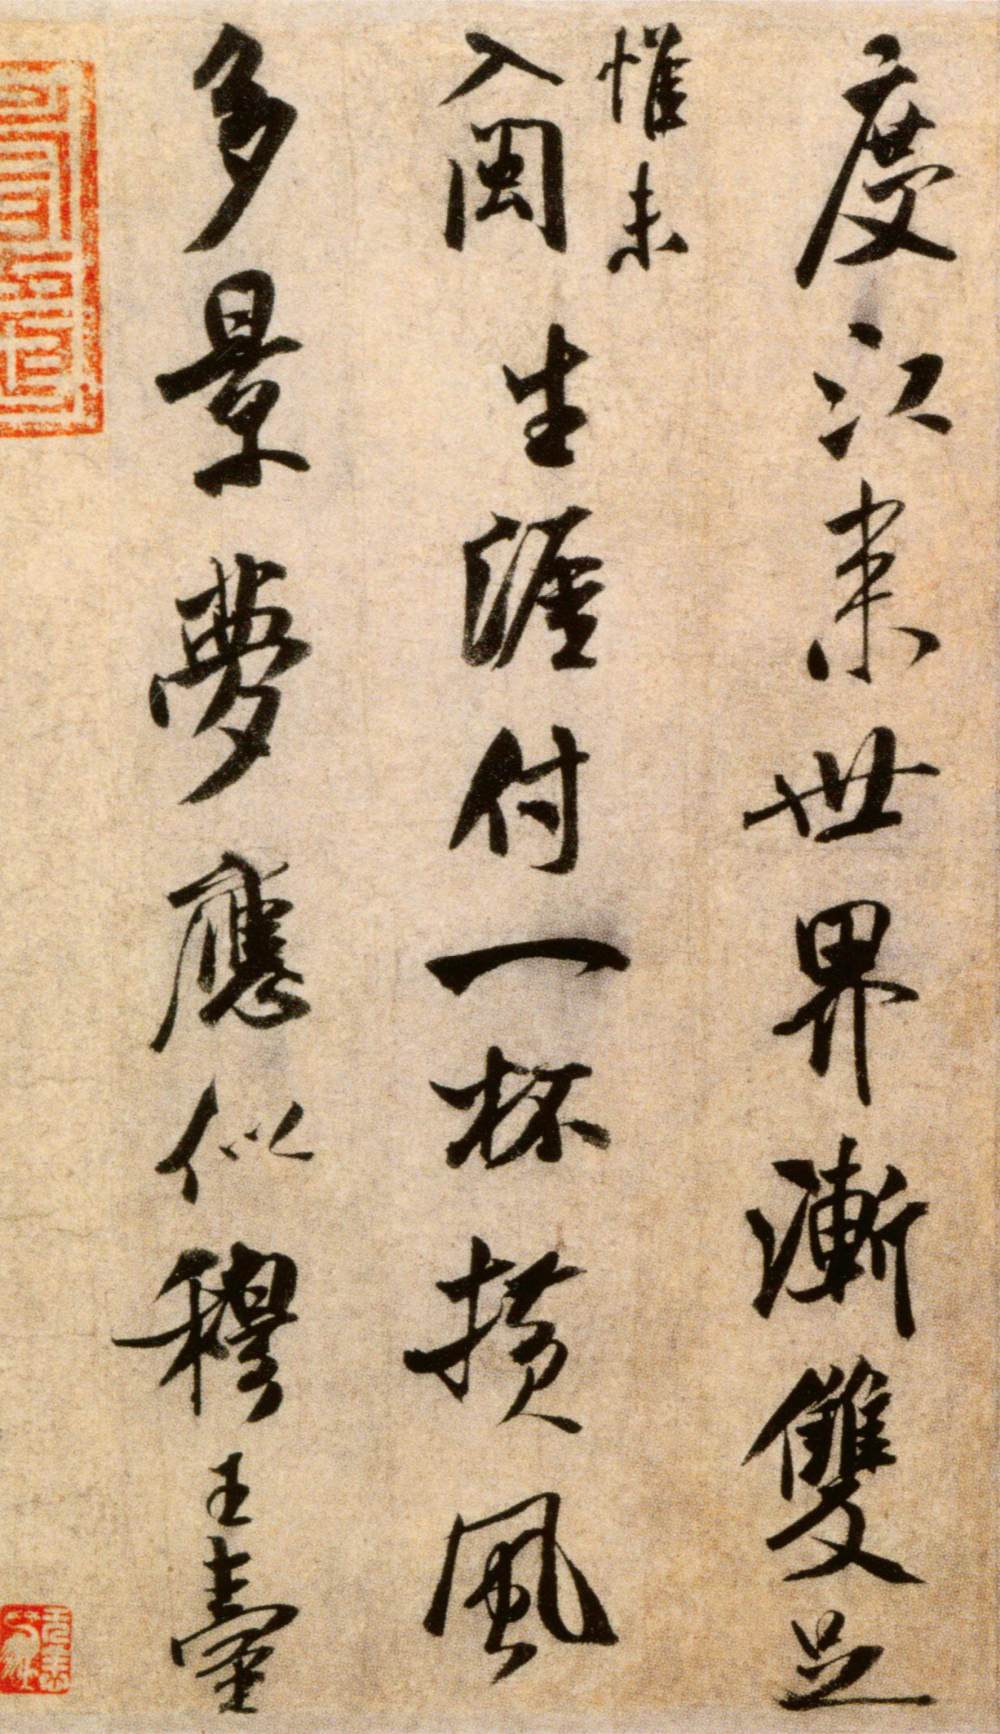 度江來世界漸雙足
惟未
入閩生涯付一杯橫風
多景夢應似穆王臺